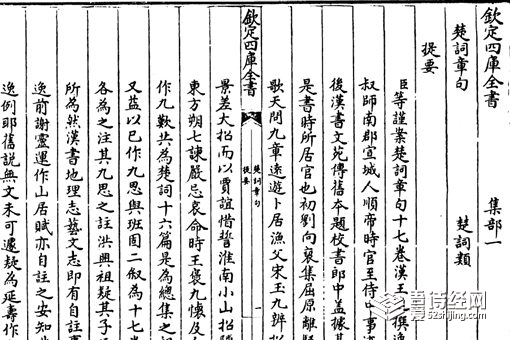 欽定四庫全書 集部一
楚詞章句 楚詞類
提要
臣等謹案楚詞章句十七卷漢王撰逸
叔師南郡宜城人順帝時官至侍事
後漢書文苑傳舊本題校書郎中蓋據其
是書時所居官也初劉向裒集屈原離騷
歌天問九章遠遊卜居漁父宋玉九辨招
欽定四庫全書 楚詞章句 提要 一
景差大招而以賈誼惜誓淮南小山招
東方朔七諫嚴忌哀命時王褒九懷及
作九歎共為楚詞十六篇是為總集之
又益以己作九思與班固二叙為十七
各為之注其九思之註洪興祖疑其子
所為然漢書地理志藝文志即有自註
逸前謝靈運作山居賦亦自註之安知
逸例耶舊説無文未可遽疑為延壽作
诗经网
52shijing.com